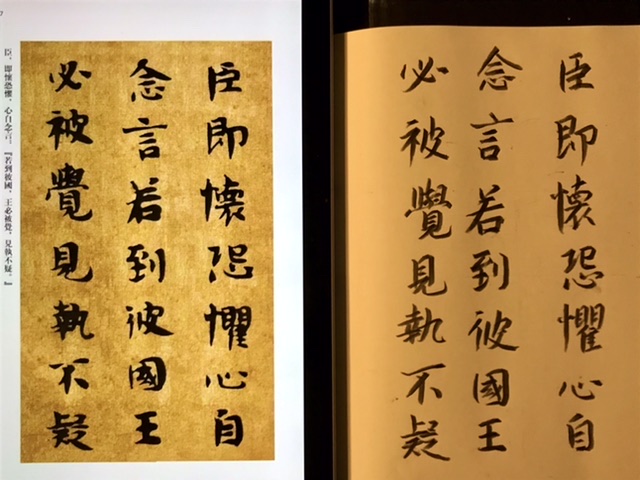 臣、即懷恐懼，心自念言。『若到彼國，王必被覺，見執不疑。』
臣即懷恐懼心自
念言若到彼國王
必被覺見執不疑
臣即懷恐懼心自
念言若到彼國王
必被覺見執不疑